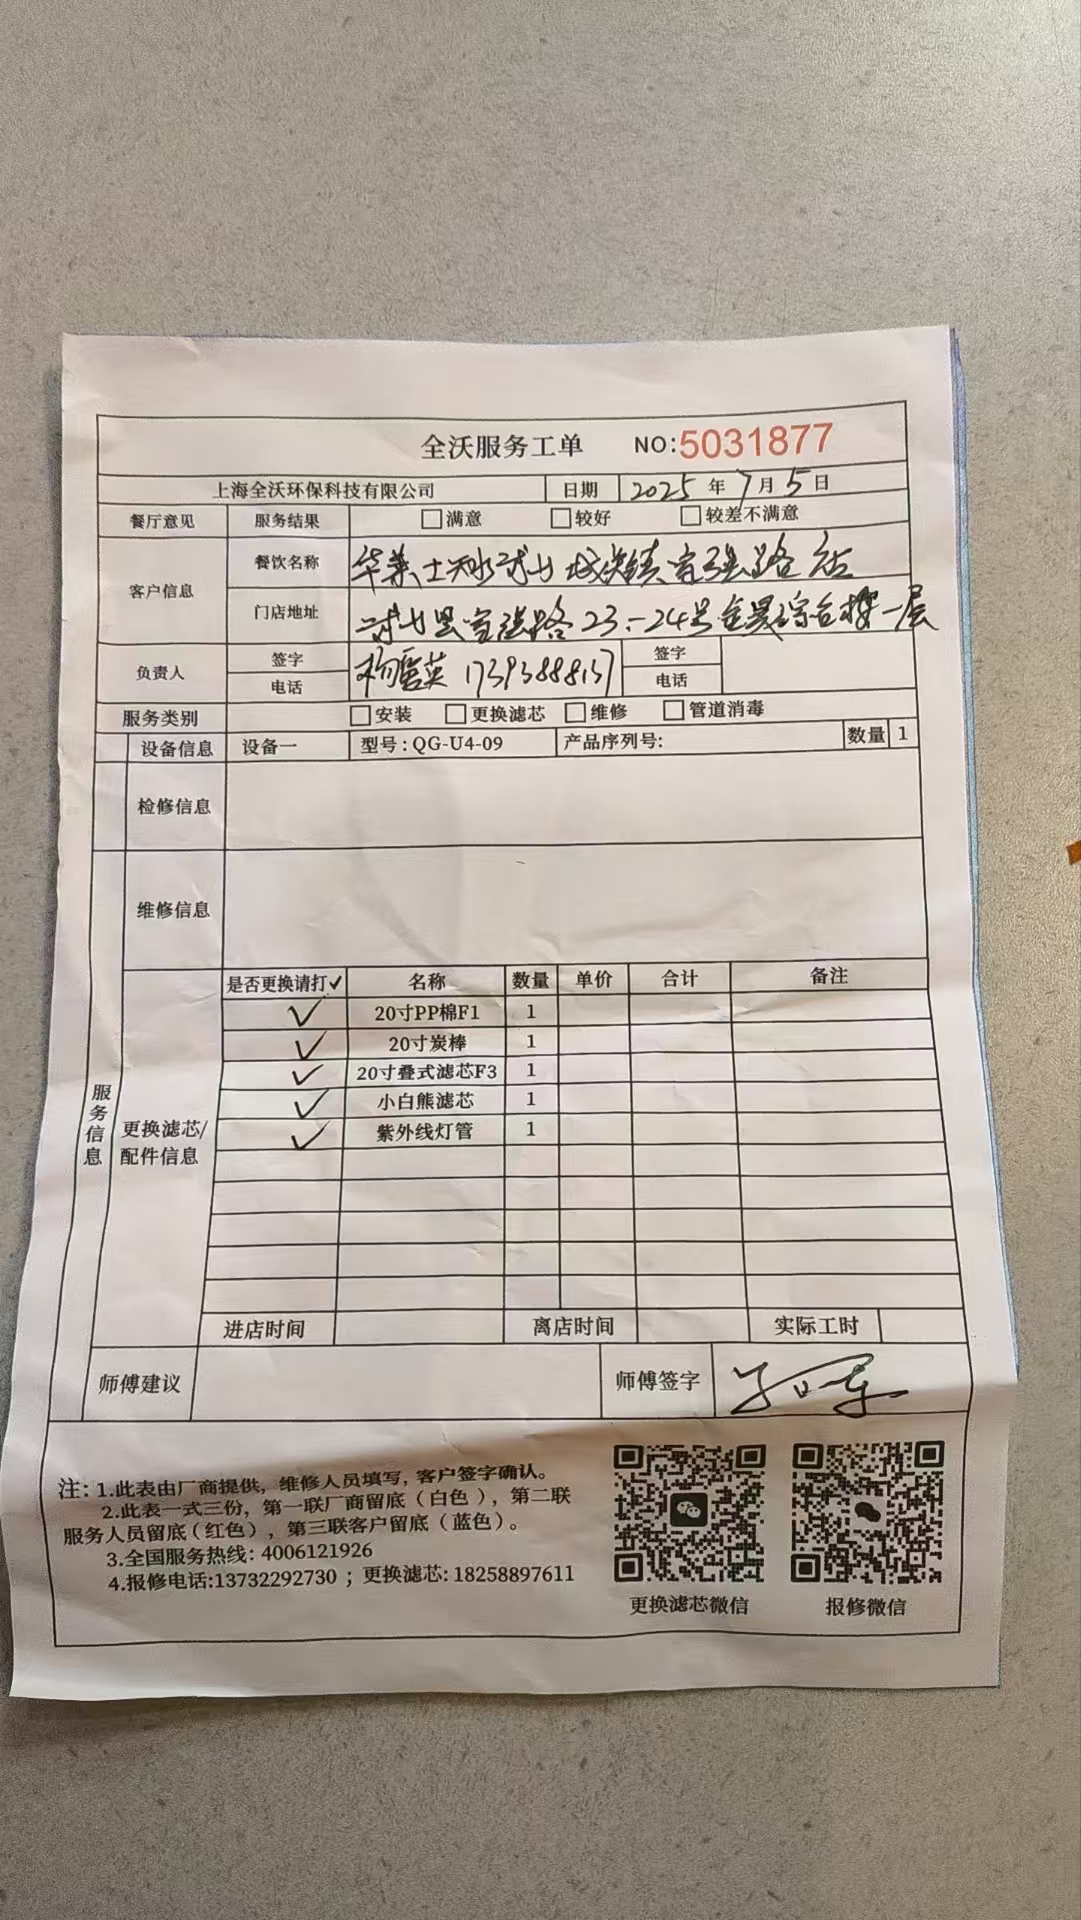 全沃服务工单 NO:5031877
上海全沃环保科技有限公司 日期 2025年7月5日
餐厅意见 服务结果 □满意 □较好 □较差不满意
客户信息 餐饮名称 华莱士天水武山城关镇富强路店
门店地址 武山县富强路23-24号金晟综合楼一层
负责人 签字 杨 英 签字
电话 17393888157 电话
服务类别 □安装 □更换滤芯 □维修 □管道消毒
设备信息 设备一 型号:QG-U4-09 产品序列号: 数量 1
检修信息
维修信息
服务信息
更换滤芯/
配件信息
是否更换请打✓ 名称 数量 单价 合计 备注
✓ 20寸PP棉F1 1
✓ 20寸炭棒 1
✓ 20寸叠式滤芯F3 1
✓ 小白熊滤芯 1
✓ 紫外线灯管 1
进店时间 离店时间 实际工时
师傅建议 师傅签字
注: 1.此表由厂商提供, 维修人员填写, 客户签字确认。
2.此表一式三份, 第一联厂商留底(白色), 第二联
服务人员留底(红色), 第三联客户留底(蓝色)。
3.全国服务热线: 4006121926
4.报修电话:13732292730 ; 更换滤芯: 18258897611
更换滤芯微信 报修微信